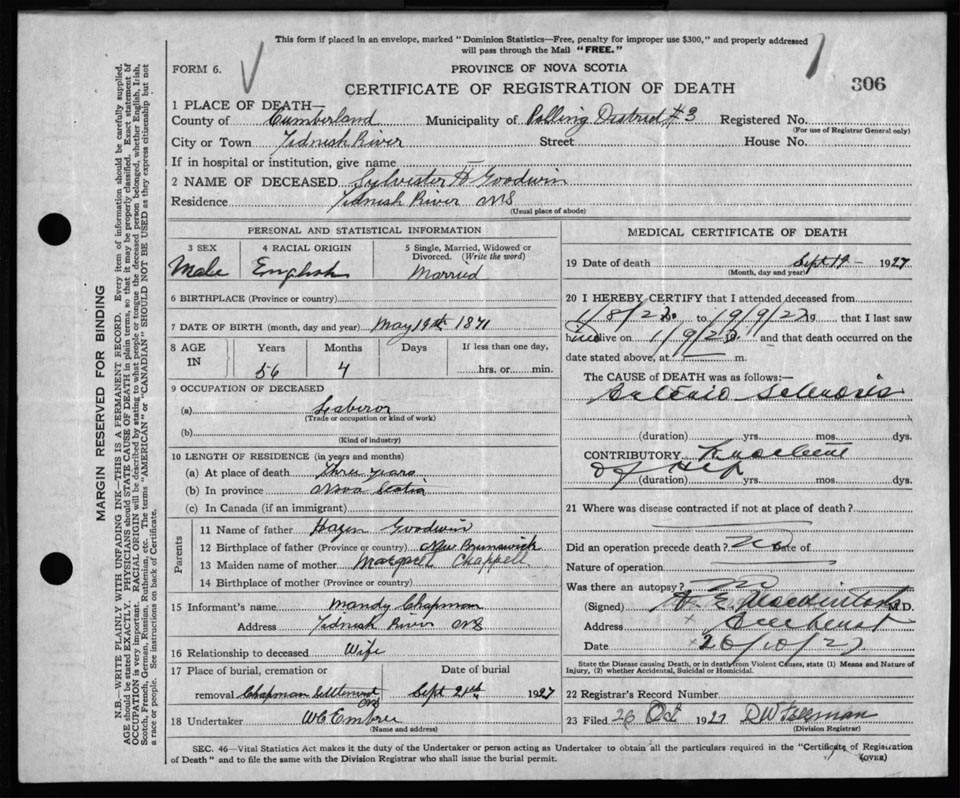 This form if placed in an envelope, marked "Dominion Statistics—Free, penalty for improper use $300," and properly addressed
will pass through the Mail "FREE."
FORM 6.
PROVINCE OF NOVA SCOTIA
306
CERTIFICATE OF REGISTRATION OF DEATH
1 PLACE OF DEATH—
County of Cumberland Municipality of Polling District #3 Registered No.
(For use of Registrar General only)
City or Town Tidnish River Street House No.
If in hospital or institution, give name —
2 NAME OF DECEASED Sylvester H Goodwin
Residence Tidnish River NS
(Usual place of abode)
PERSONAL AND STATISTICAL INFORMATION
3 SEX 4 RACIAL ORIGIN 5 Single, Married, Widowed or
Divorced. (Write the word)
Male English Married
6 BIRTHPLACE (Province or country)
7 DATE OF BIRTH (month, day and year) May 19th 1871
8 AGE Years Months Days If less than one day,
IN 56 4 hrs. or min.
9 OCCUPATION OF DECEASED
(a)
(Trade or occupation or kind of work)
(b)
(Kind of industry)
10 LENGTH OF RESIDENCE (in years and months)
(a) At place of death Three years
(b) In province Nova Scotia
(c) In Canada (if an immigrant)
Parents
11 Name of father Hazen Goodwin
12 Birthplace of father (Province or country) New Brunswick
13 Maiden name of mother Margaret Chappell
14 Birthplace of mother (Province or country)
15 Informant's name Mandy Chapman
Address Tidnish River NS
16 Relationship to deceased Wife
17 Place of burial, cremation or Date of burial
removal Chapman Settlement NS Sept 21st 1927
18 Undertaker W C Embree
(Name and address)
MEDICAL CERTIFICATE OF DEATH
19 Date of death Sept 19 — 1927
(Month, day and year)
20 I HEREBY CERTIFY that I attended deceased from
1/8/27 to 19/9/27 19 that I last saw
h alive on 1/9/27 and that death occurred on the
date stated above, at — m.
The CAUSE of DEATH was as follows:—
Sclerosis
(duration) yrs. mos. dys.
CONTRIBUTORY
of Hip
(duration) yrs. mos. dys.
21 Where was disease contracted if not at place of death?
Did an operation precede death? No Date of
Nature of operation
Was there an autopsy? No
(Signed) E. Mackintosh M.D.
Address Amherst
Date 26/10/27
State the Disease causing Death, or in death from Violent Causes, state (1) Means and Nature of
Injury, (2) whether Accidental, Suicidal or Homicidal.
22 Registrar's Record Number
23 Filed 26 Oct 1927 D W Freeman
(Division Registrar)
SEC. 46—Vital Statistics Act makes it the duty of the Undertaker or person acting as Undertaker to obtain all the particulars required in the "Certificate of Registration
of Death" and to file the same with the Division Registrar who shall issue the burial permit.
(OVER)
MARGIN RESERVED FOR BINDING
N.B.—WRITE PLAINLY WITH UNFADING INK—THIS IS A PERMANENT RECORD. Every item of information should be carefully supplied.
AGE should be stated EXACTLY. PHYSICIANS should STATE CAUSE OF DEATH in plain terms, so that it may be properly classified. Exact statement of
OCCUPATION is very important. RACIAL ORIGIN will be described by stating to what people or tongue the deceased person belonged, whether English, Irish,
Scotch, French, German, Russian, Ruthenian, etc. The terms "AMERICAN" or "CANADIAN" SHOULD NOT BE USED as they express citizenship but not
a race or people. See instructions on back of Certificate.